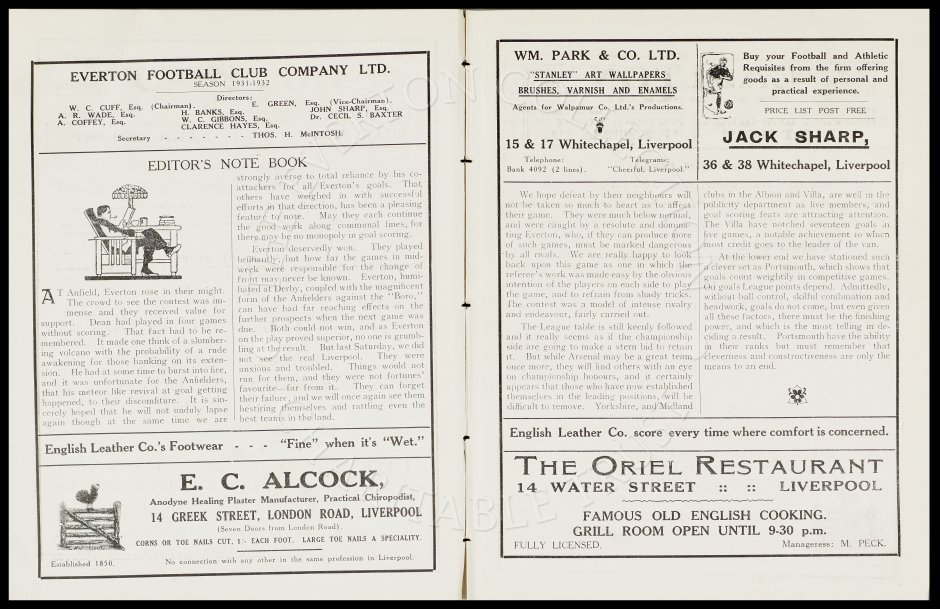 EVERTON FOOTBALL CLUB COMPANY LTD.
SEASON 1931-1932
Directors:
W. C. CUFF, Esq. (Chairman). E. GREEN, Esq. (Vice-Chairman).
A. R. WADE, Esq. H. BANKS, Esq. JOHN SHARP, Esq.
A. COFFEY, Esq. W. C. GIBBONS, Esq. Dr. CECIL S. BAXTER
CLARENCE HAYES, Esq.
Secretary - - - - - - - THOS. H. McINTOSH.
EDITOR'S NOTE BOOK
AT Anfield, Everton rose in their might.
The crowd to see the contest was im-
mense and they received value for
support. Dean had played in four games
without scoring. That fact had to be re-
membered. It made one think of a slumber-
ing volcano with the probability of a rude
awakening for those banking on its exten-
sion. He had at some time to burst into fire,
and it was unfortunate for the Anfielders,
that his meteor like revival at goal getting
happened, to their discomfiture. It is sin-
cerely hoped that he will not unduly lapse
again though at the same time we are
strongly averse to total reliance by his co-
attackers for all Everton's goals. That
others have weighed in with successful
efforts in that direction, has been a pleasing
feature to note. May they each continue
the good work along communal lines, for
there may be no monopoly in goal scoring.
Everton deservedly won. They played
brilliantly, but how far the games in mid-
week were responsible for the change of
front may never be known. Everton, humi-
liated at Derby, coupled with the magnificent
form of the Anfielders against the "Boro,"
can have had far reaching effects on the
further prospects when the next game was
due. Both could not win, and as Everton
on the play proved superior, no one is grumb-
ling at the result. But last Saturday, we did
not see the real Liverpool. They were
anxious and troubled. Things would not
run for them, and they were not fortunes'
favourite—far from it. They can forget
their failure, and we will once again see them
bestiring themselves and rattling even the
best teams in the land.
English Leather Co.'s Footwear - - - "Fine" when it's "Wet."
E. C. ALCOCK,
Anodyne Healing Plaster Manufacturer, Practical Chiropodist,
14 GREEK STREET, LONDON ROAD, LIVERPOOL
(Seven Doors from London Road).
CORNS OR TOE NAILS CUT, 1/- EACH FOOT. LARGE TOE NAILS A SPECIALITY.
Established 1850. No connection with any other in the same profession in Liverpool.
WM. PARK & CO. LTD.
"STANLEY" ART WALLPAPERS
BRUSHES, VARNISH AND ENAMELS
Agents for Walpamur Co. Ltd.'s Productions.
15 & 17 Whitechapel, Liverpool
Telephone: Telegrams:
Bank 4092 (2 lines). "Cheerful, Liverpool."
Buy your Football and Athletic
Requisites from the firm offering
goods as a result of personal and
practical experience.
PRICE LIST POST FREE
JACK SHARP,
36 & 38 Whitechapel, Liverpool
We hope defeat by their neighbours will
not be taken so much to heart as to affect
their game. They were much below normal,
and were caught by a resolute and domina-
ting Everton, who, if they can produce more
of such games, must be marked dangerous
by all rivals. We are really happy to look
back upon this game as one in which the
referee's work was made easy by the obvious
intention of the players on each side to play
the game, and to refrain from shady tricks.
The contest was a model of intense rivalry
and endeavour, fairly carried out.
The League table is still keenly followed
and it really seems as if the championship
side are going to make a stern bid to retain
it. But while Arsenal may be a great team
once more, they will find others with an eye
on championship honours, and it certainly
appears that those who have now established
themselves in the leading positions, will be
difficult to remove. Yorkshire, and Midland
clubs in the Albion and Villa, are well in the
publicity department as live members, and
goal scoring feats are attracting attention.
The Villa have notched seventeen goals in
five games, a notable achievement to which
most credit goes to the leader of the van.
At the lower end we have stationed such
a clever set as Portsmouth, which shows that
goals count weightily in competitive games.
On goals League points depend. Admittedly,
without ball control, skilful combination and
headwork, goals do not come, but even given
all these factors, there must be the finishing
power, and which is the most telling in de-
ciding a result. Portsmouth have the ability
in their ranks but must remember that
cleverness and constructiveness are only the
means to an end.
English Leather Co. score every time where comfort is concerned.
THE ORIEL RESTAURANT
14 WATER STREET :: :: LIVERPOOL
FAMOUS OLD ENGLISH COOKING.
GRILL ROOM OPEN UNTIL 9-30 p.m.
FULLY LICENSED. Manageress: M. PECK.